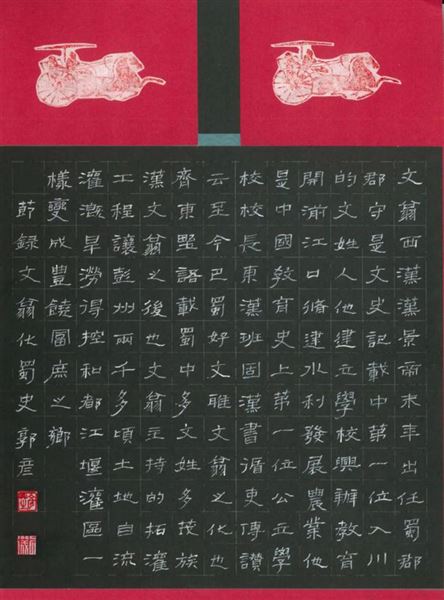 文翁西漢漢景帝末年出任蜀郡
郡守是文史記載中第一位入川
的文姓人他建立學校興辦教育
開湔江口脩建水利發展農業他
是中國教育史上第一位公立學
校校長東漢班固漢書循吏傳讚
云至今巴蜀好文雅文翁之化也
齊東野語載蜀中多文姓多族
漢文翁之後也文翁主持的拓灌
工程讓彭州兩千多頃土地自流
灌溉旱澇得控和都江堰灌區一
樣變成豐饒富庶之鄉
節録文翁化蜀史郭彦